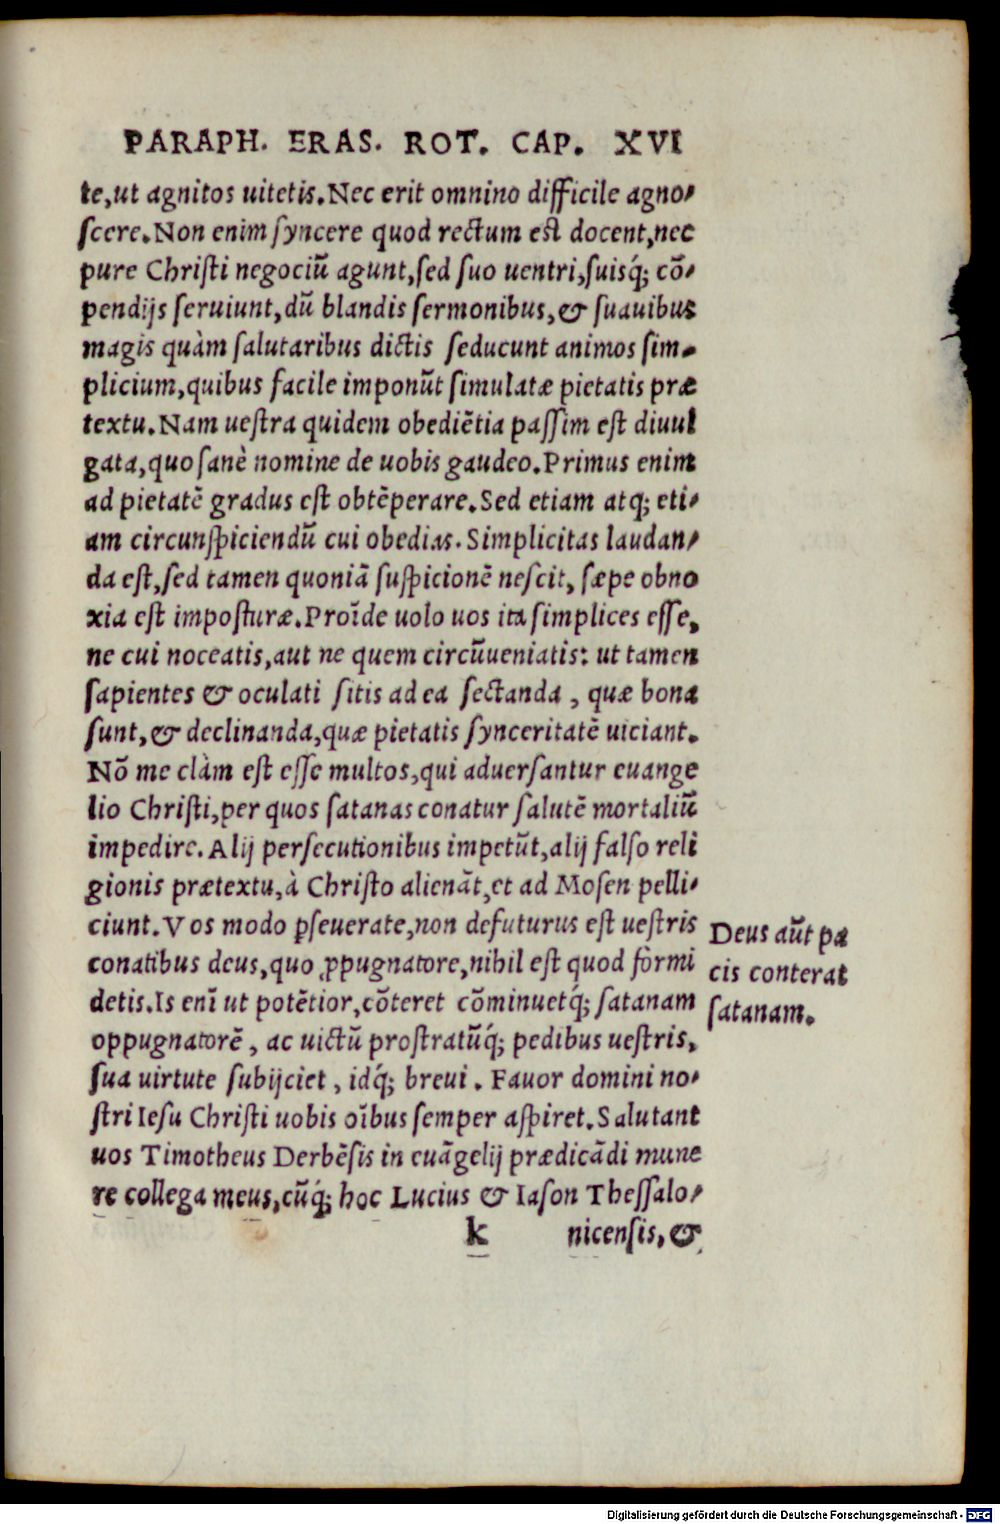 PARAPH. ERAS. ROT. CAP. XVI
te,ut agnitos uitetis.Nec erit omnino difficile agno-
scere.Non enim syncere quod rectum est docent,nec
pure Christi negociũ agunt,sed suo uentri,suisq́; cõ-
pendijs seruiunt,dũ blandis sermonibus,& suauibus
magis quàm salutaribus dictis seducunt animos sim-
plicium,quibus facile imponũt simulatæ pietatis præ
textu.Nam uestra quidem obediẽtia passim est diuul
gata,quo sanè nomine de uobis gaudeo.Primus enim
ad pietatẽ gradus est obtẽperare.Sed etiam atq; eti-
am circunspiciendũ cui obedias.Simplicitas laudan-
da est,sed tamen quoniã suspicionẽ nescit, sæpe obno
xia est imposturæ.Proĩde uolo uos ita simplices esse,
ne cui noceatis,aut ne quem circũueniatis: ut tamen
sapientes & oculati sitis ad ea sectanda , quæ bona
sunt,& declinanda,quæ pietatis synceritatẽ uiciant.
Nõ me clàm est esse multos,qui aduersantur euange
lio Christi,per quos satanas conatur salutẽ mortaliũ
impedire.Alij persecutionibus impetũt,alij falso reli
gionis prætextu,à Christo alienãt,et ad Mosen pelli-
ciunt.Vos modo ꝑseuerate,non defuturus est uestris
conatibus deus,quo ꝓpugnatore,nihil est quod formi
detis.Is enĩ ut potẽtior,cõteret cõminuetq́; satanam
oppugnatorẽ , ac uictũ prostratũq́; pedibus uestris,
sua uirtute subijciet , idq́; breui . Fauor domini no-
stri Iesu Christi uobis oĩbus semper aspiret.Salutant
uos Timotheus Derbẽsis in euãgelij prædicãdi mune
re collega meus,cũq́; hoc Lucius & Iason Thessalo-
k nicensis,&
Deus aũt pa
cis conterat
satanam.
Digitalisierung gefördert durch die Deutsche Forschungsgemeinschaft - DFG